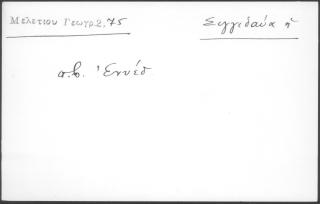 Μελετίου Γεωγρ.2,75
Σιγγιδαύα ἡ
σ.β. Ἐννέδ